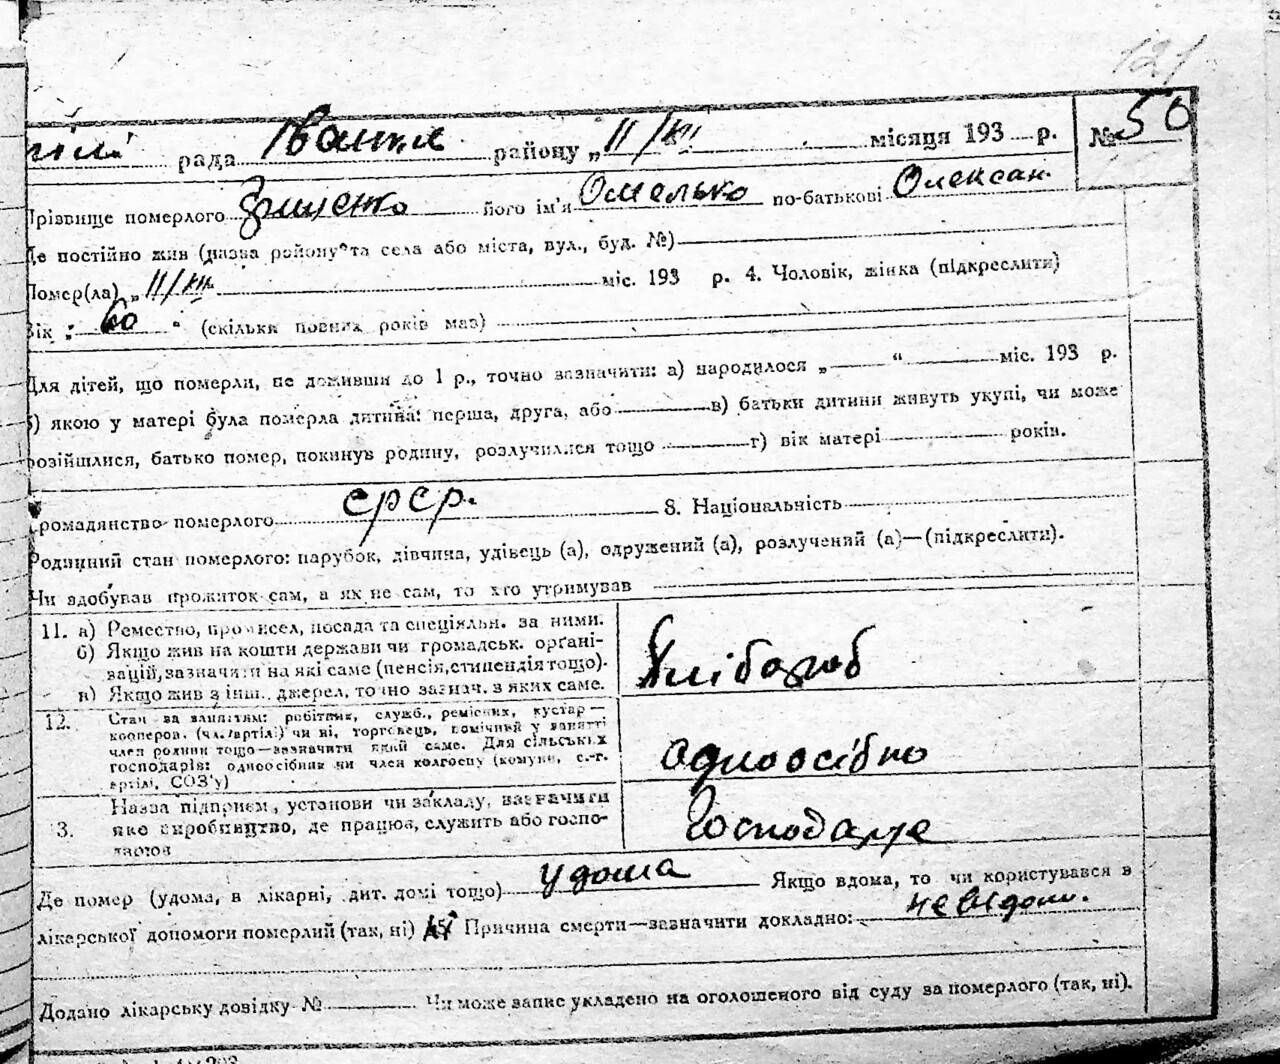 121
рада Іванків району „ II/VII місяця 193 р. № 50
Прізвище померлого його ім'я Омелько по-батькові Олексан.
Де постійно жив (назва району та села або міста, вул., буд. №)
Помер(ла) „ II/VII міс. 193 р. 4. Чоловік, жінка (підкреслити)
Вік „ 60 " (скільки повних років мав)
Для дітей, що померли, не доживши до 1 р., точно зазначити: а) народилося „ " міс. 193 р.
б) якою у матері була померла дитина: перша, друга, або в) батьки дитини живуть укупі, чи може
розійшлися, батько помер, покинув родину, розлучилися тощо г) вік матері років.
Громадянство померлого СРСР. 8. Національність
Родинний стан померлого: парубок, дівчина, удівець (а), одружений (а), розлучений (а)—(підкреслити).
Чи здобував прожиток сам, а як не сам, то хто утримував
11. а) Ремество, промисел, посада та спеціяльн. за ними.
б) Якщо жив на кошти держави чи громадськ. органі-
зацій, зазначити на які саме (пенсія, стипендія тощо).
в) Якщо жив з інш. джерел, точно зазнач. з яких саме.
Хлібороб
12. Стан за заняттям: робітник, служб., ремісник, кустар—
кооперов. (чл. артілі) чи ні, торговець, помічний у занятті
член родини тощо—зазначити який саме. Для сільських
господарів: одноосібник чи член колгоспу (комуни, с.-г.
артілі, СОЗ'у)
одноосібно
3. Назва підприєм., установи чи закладу, зазначити
яке виробництво, де працює, служить або госпо-
дарює
Господарює
Де помер (удома, в лікарні, дит. домі тощо) удома Якщо вдома, то чи користувався в
лікарської допомоги померлий (так, ні) Причина смерти—зазначити докладно: невідом.
Додано лікарську довідку № Чи може запис укладено на оголошеного від суду за померлого (так, ні).